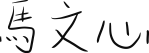 馬文心